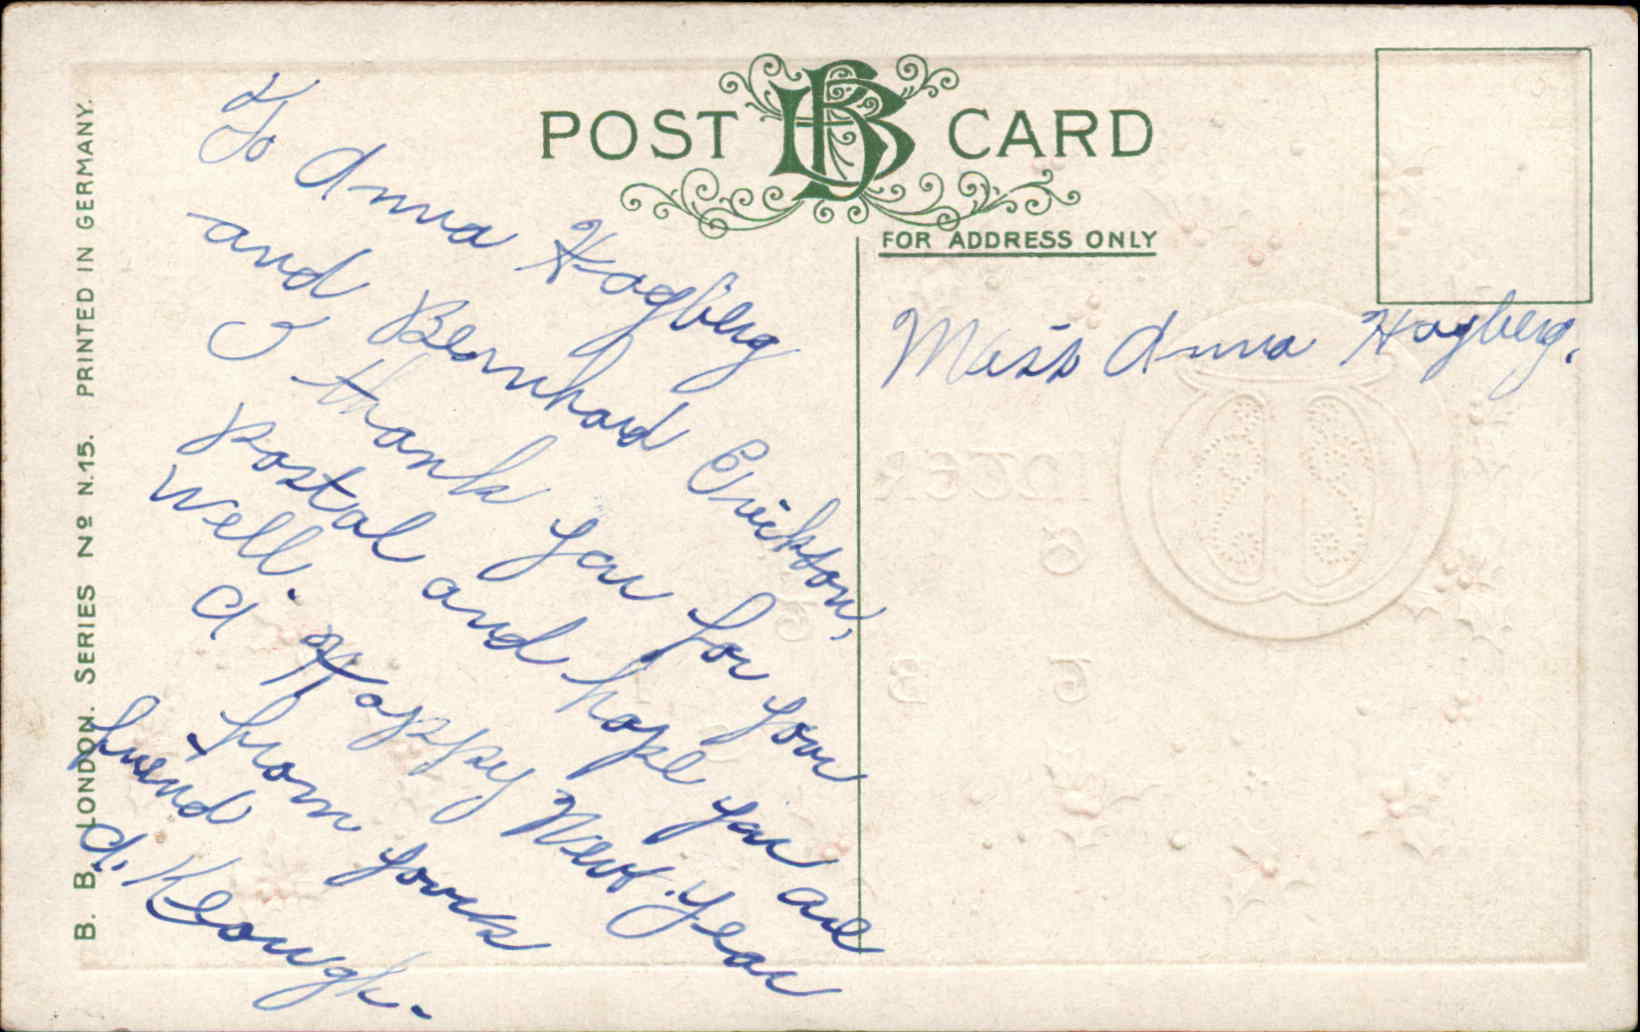 POST BB CARD
FOR ADDRESS ONLY
B. B. LONDON. SERIES Nº N.15. PRINTED IN GERMANY.
To Anna Hagberg
and Bernhard Erickson,
I thank you for your
postal and hope you are
well.
A Happy New. Year
from yours
friend
A. Keough.
Miss Anna Hagberg.